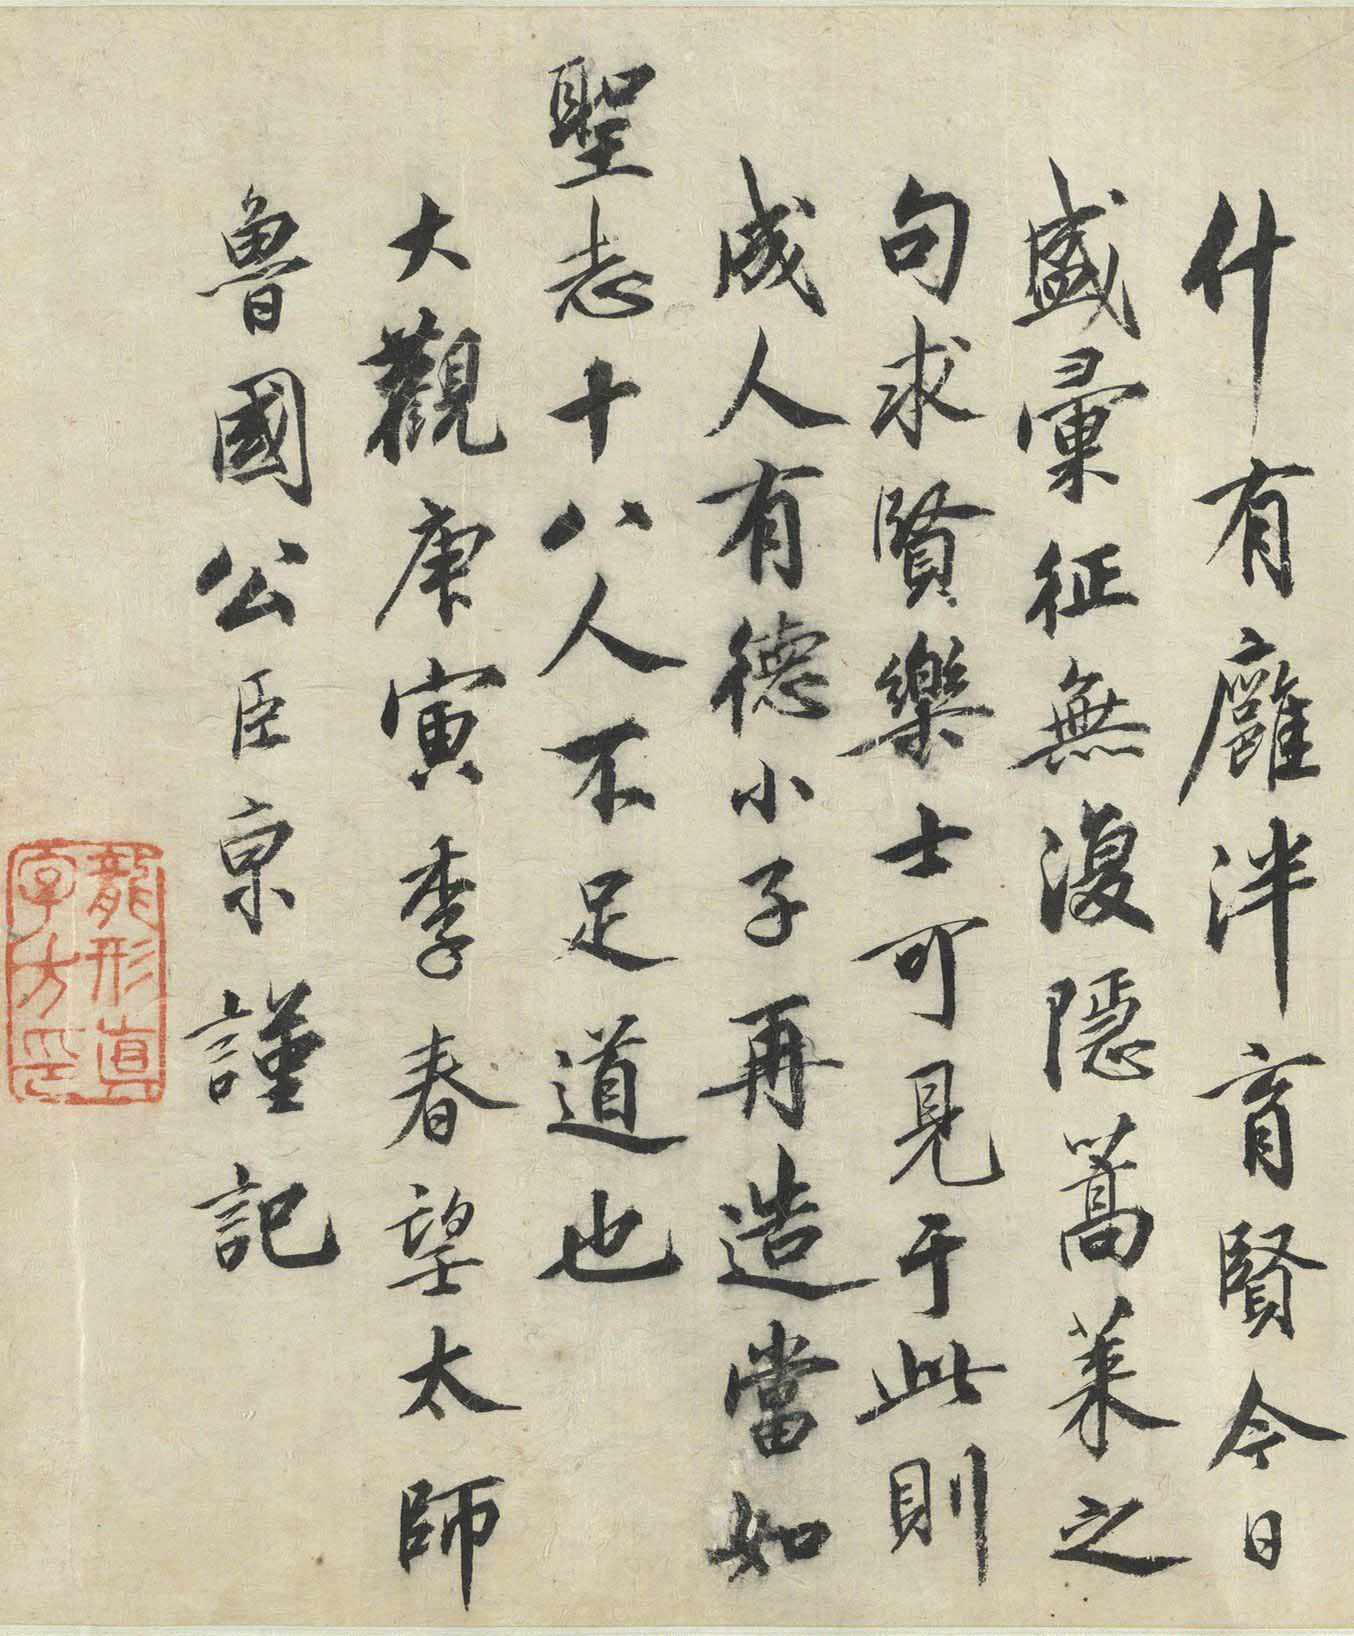 什有廱泮育賢今日
盛彙征無復隱蒿萊之
句求賢樂士可見于此則
成人有德小子再造當如
聖志十八人不足道也
大觀庚寅季春望太師
魯國公臣京謹記
龍形直
字方